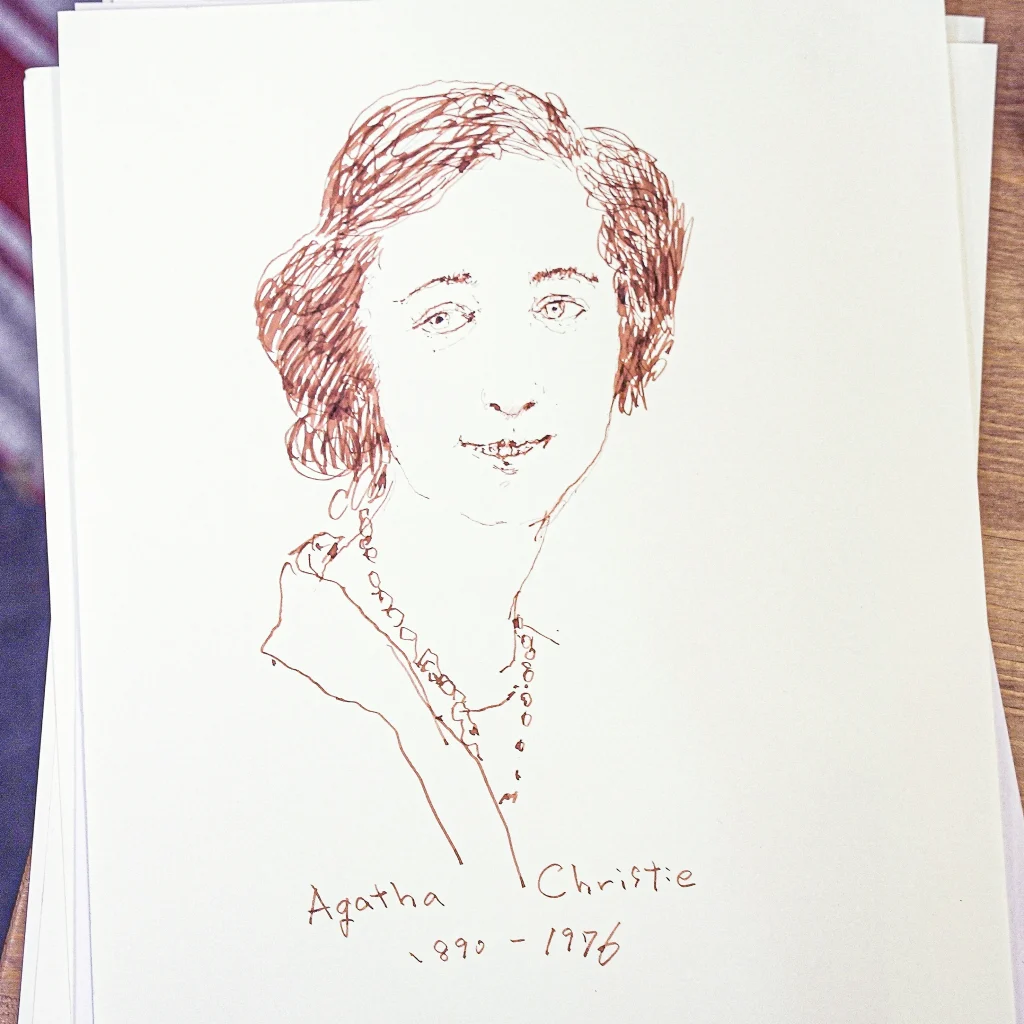 Agatha Christie
1890 - 1976